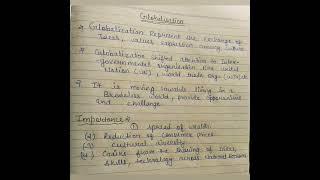 Globalisation
Globalization Represent the exchange of
Ideas, values expression among
Globalization shifted attention to Inter-
governmental organisation like united
Nation (UN), world trade org (WTO)
It is moving towards living in a
Broader world, provide opportunities
and challenge.
Importance
① Spread of wealth
(2) Reduction of consumer prices
(3) cultural diversity
(4) from the sharing of Ideas,
skills, technology across